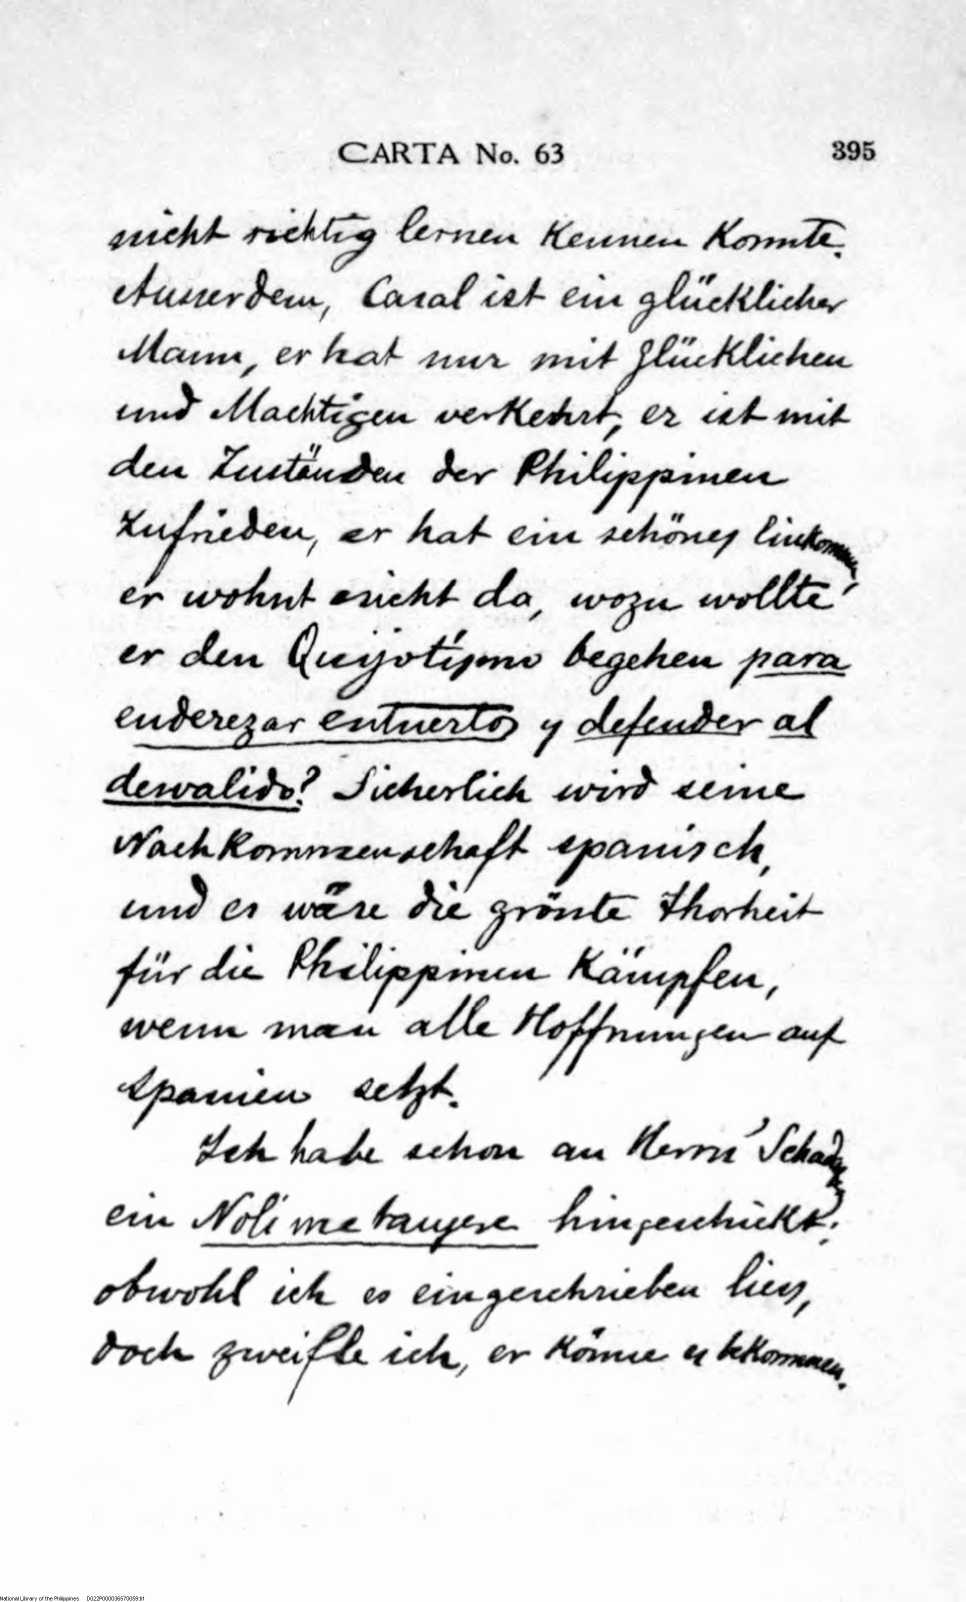 CARTA No. 63 395
nicht richtig lernen kennen konnte.
Ausserdem, Casal ist ein glücklicher
Mann, er hat nur mit glücklichen
und Mächtigen verkehrt, er ist mit
den Zuständen der Philippinen
zufrieden, er hat ein schönes Einkommen,
er wohnt nicht da, wozu wollte
er den Quijotismo begehen para
enderezar entuertos y defender al
desvalido? Sicherlich wird seine
Nachkommenschaft spanisch,
und es wäre die grösste Thorheit
für die Philippinen kämpfen,
wenn man alle Hoffnungen auf
Spanien setzt.
Ich habe schon an Herrn
ein Noli me tangere hingeschickt;
obwohl ich es eingeschrieben liess,
doch zweifle ich, er könne es bekommen.
National Library of the Philippines